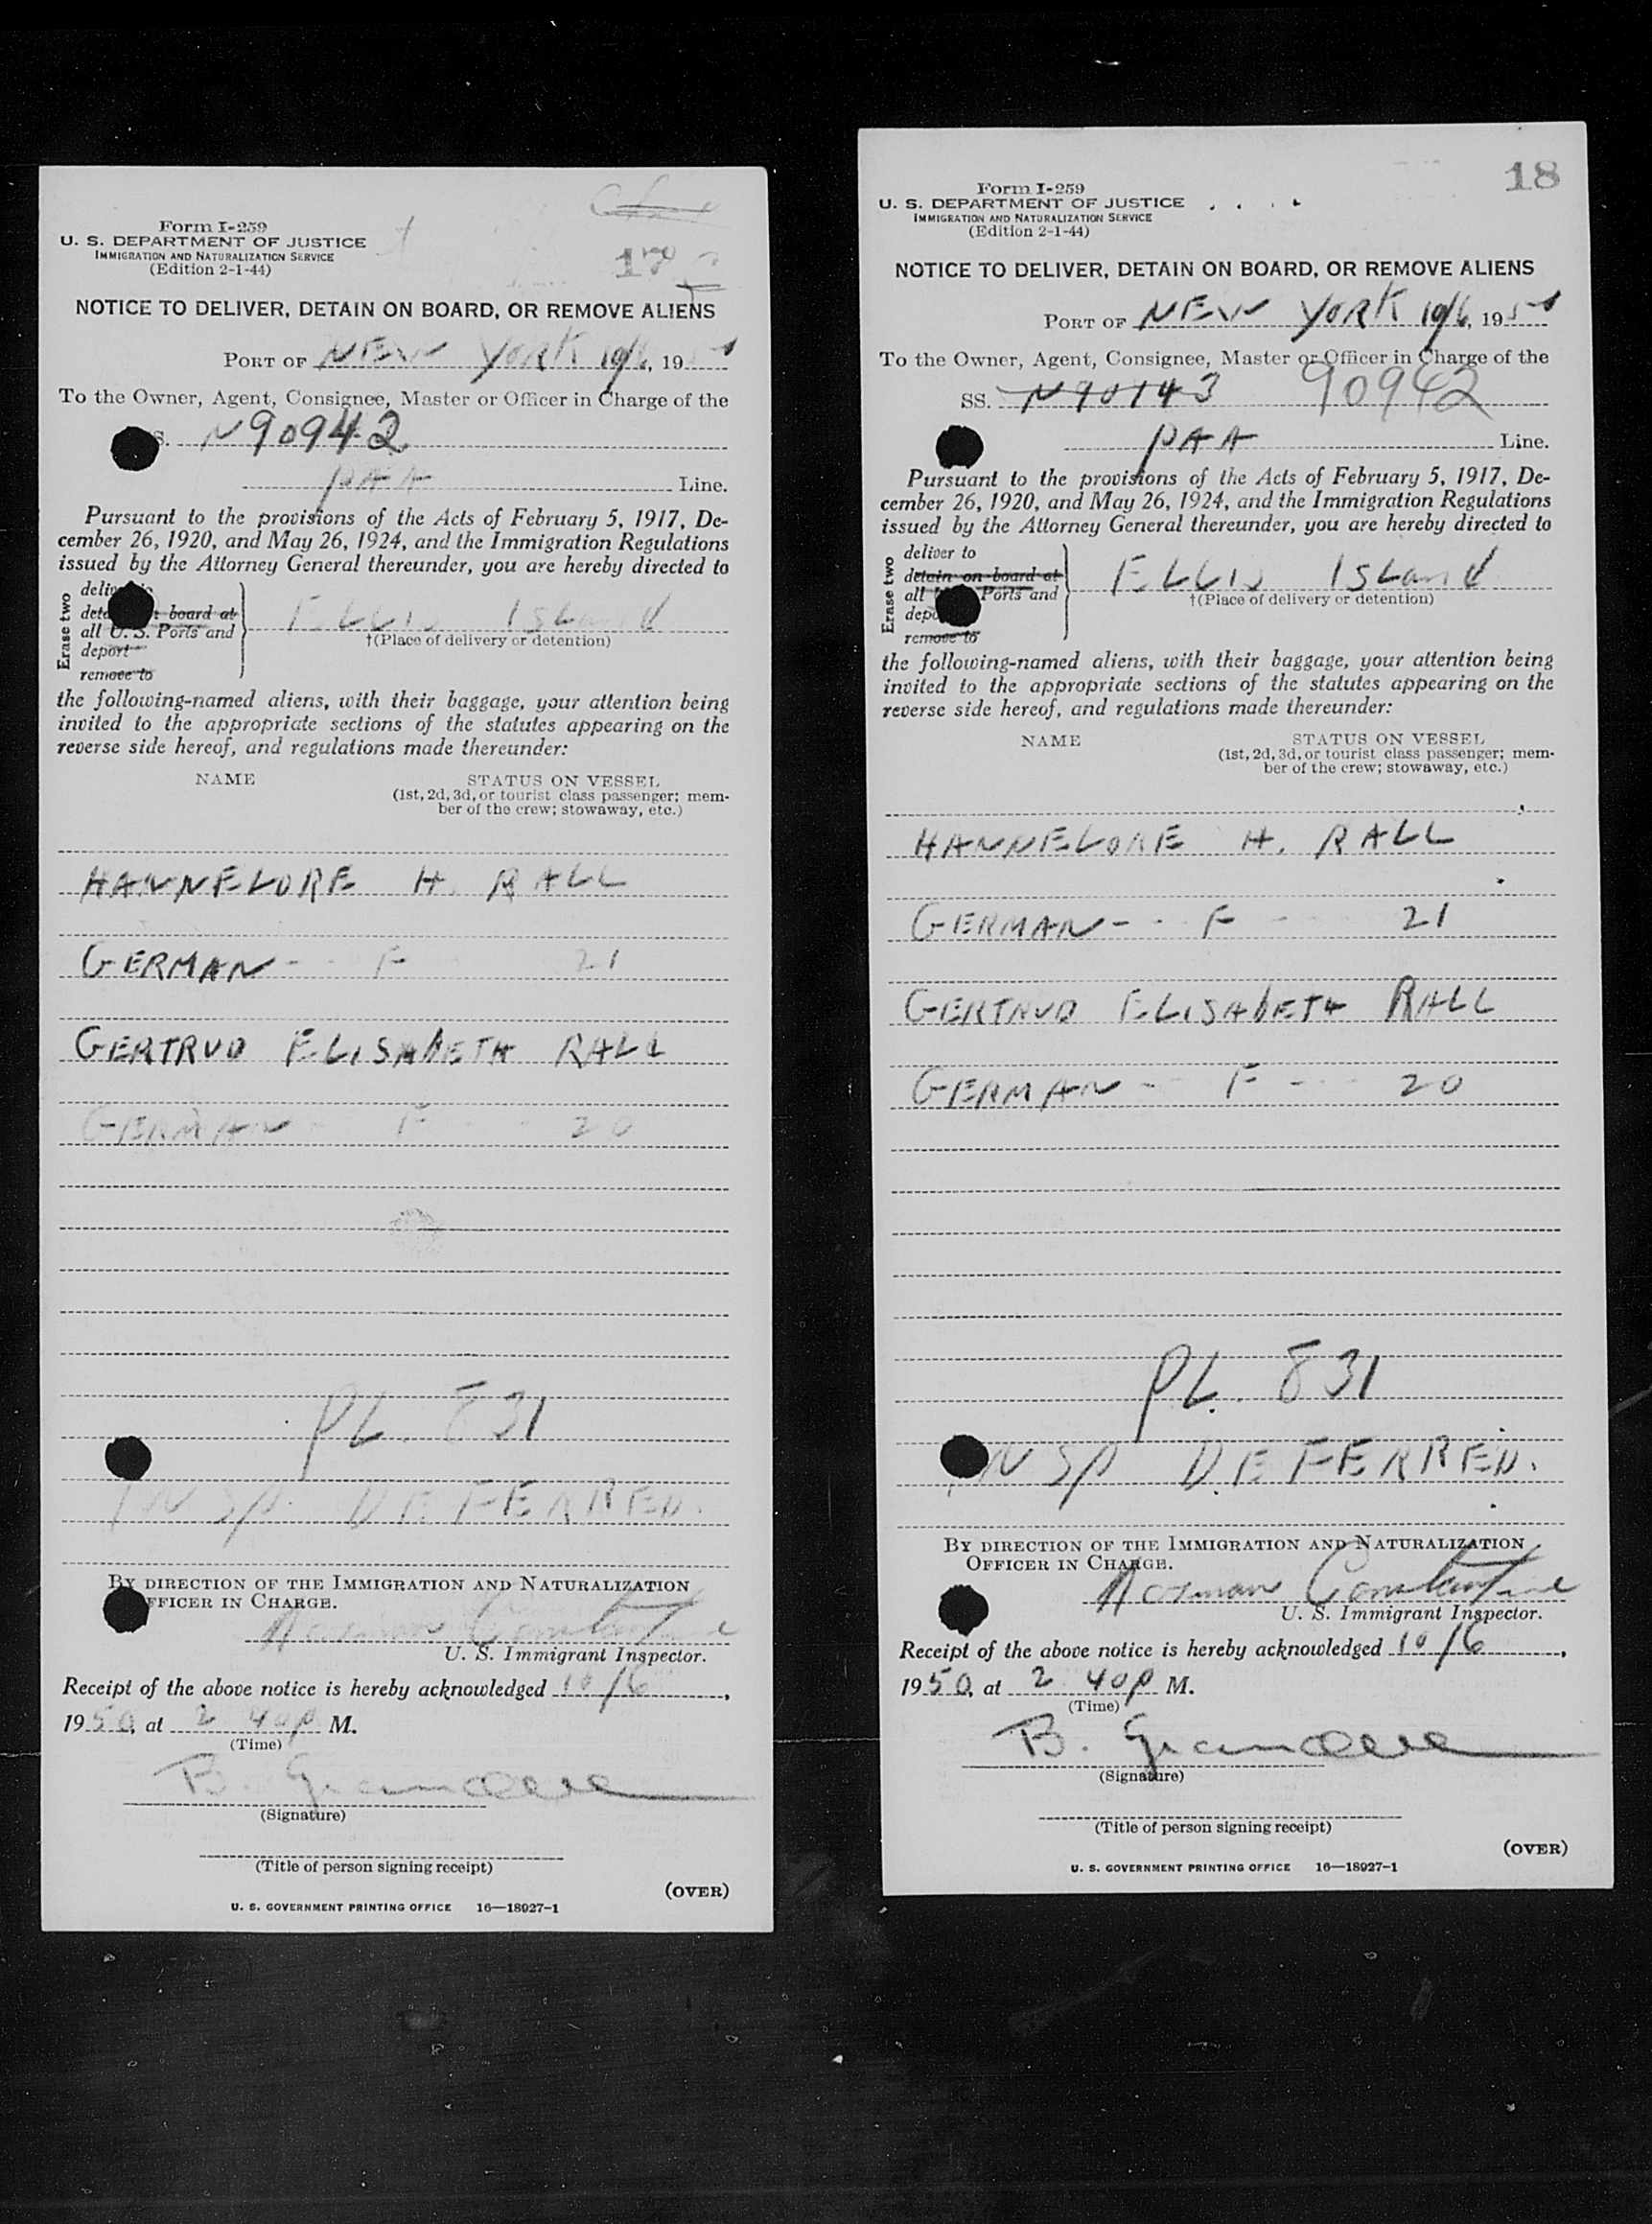 Form I-259
U. S. DEPARTMENT OF JUSTICE
IMMIGRATION AND NATURALIZATION SERVICE
(Edition 2-1-44)
17
NOTICE TO DELIVER, DETAIN ON BOARD, OR REMOVE ALIENS
PORT OF NEW YORK 10/6, 1950
To the Owner, Agent, Consignee, Master or Officer in Charge of the
S. N90942
PAA Line.
Pursuant to the provisions of the Acts of February 5, 1917, De-
cember 26, 1920, and May 26, 1924, and the Immigration Regulations
issued by the Attorney General thereunder, you are hereby directed to
Erase two
board at
all U. S. Ports and
deport
remove to
ELLIS ISLAND
†(Place of delivery or detention)
the following-named aliens, with their baggage, your attention being
invited to the appropriate sections of the statutes appearing on the
reverse side hereof, and regulations made thereunder:
NAME STATUS ON VESSEL
(1st, 2d, 3d, or tourist class passenger; mem-
ber of the crew; stowaway, etc.)
HANNELORE H. RALL
GERMAN - - F 21
GERTRUD ELISABETH RALL
GERMAN - F - - 20
PL. 831
INSP. DEFERRED.
BY DIRECTION OF THE IMMIGRATION AND NATURALIZATION
OFFICER IN CHARGE.
Norman Constantine
U. S. Immigrant Inspector.
Receipt of the above notice is hereby acknowledged 10/6,
1950, at 2 40 P M.
(Time)
B.
(Signature)
(Title of person signing receipt)
(OVER)
U. S. GOVERNMENT PRINTING OFFICE 16—18927-1
18
Form I-259
U. S. DEPARTMENT OF JUSTICE
IMMIGRATION AND NATURALIZATION SERVICE
(Edition 2-1-44)
NOTICE TO DELIVER, DETAIN ON BOARD, OR REMOVE ALIENS
PORT OF NEW YORK 10/6, 1950
To the Owner, Agent, Consignee, Master or Officer in Charge of the
SS. N90143 90942
PAA Line.
Pursuant to the provisions of the Acts of February 5, 1917, De-
cember 26, 1920, and May 26, 1924, and the Immigration Regulations
issued by the Attorney General thereunder, you are hereby directed to
Erase two
deliver to
detain on board at
all Ports and
remove to
ELLIS ISLAND
†(Place of delivery or detention)
the following-named aliens, with their baggage, your attention being
invited to the appropriate sections of the statutes appearing on the
reverse side hereof, and regulations made thereunder:
NAME STATUS ON VESSEL
(1st, 2d, 3d, or tourist class passenger; mem-
ber of the crew; stowaway, etc.)
HANNELORE H. RALL
GERMAN - - F - 21
GERTRUD ELISABETH RALL
GERMAN - - F - - - 20
PL. 831
INSP DEFERRED.
BY DIRECTION OF THE IMMIGRATION AND NATURALIZATION
OFFICER IN CHARGE.
Norman Constantine
U. S. Immigrant Inspector.
Receipt of the above notice is hereby acknowledged 10/6,
1950, at 2 40 P M.
(Time)
B.
(Signature)
(Title of person signing receipt)
(OVER)
U. S. GOVERNMENT PRINTING OFFICE 16—18927-1